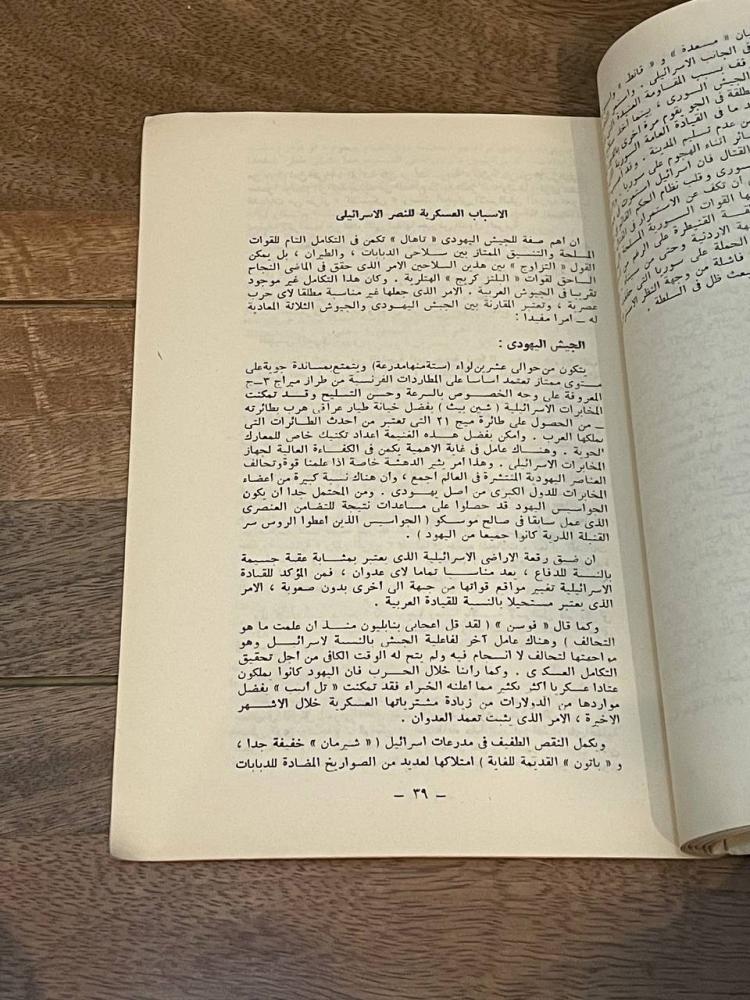 الاسباب العسكرية للنصر الاسرائيلى
ان اهم صفة للجيش اليهودى « تاهال » تكمن فى التكامل التام للقوات
المسلحة والتنسيق الممتاز بين سلاحى الدبابات ، والطيران ، بل يمكن
القول « التزاوج » بين هذين السلاحين الامر الذى حقق فى الماضى النجاح
الساحق لقوات « البلتز كريج » الهتلرية . وكان هذا التكامل غير موجود
تقريبا فى الجيوش العربية . الامر الذى جعلها غير مناسبة مطلقا لاى حرب
عصرية ، وتعتبر المقارنة بين الجيش اليهودى والجيوش الثلاثة المعادية
له ـ امرا مفيدا :
الجيش اليهودى :
يتكون من حوالى عشرين لواء (ستة منها مدرعة) ويتمتع بمساندة جوية على
مستوى ممتاز تعتمد اساسا على المطاردات الفرنسية من طراز ميراج ٣ـج
المعروفة على وجه الخصوص بالسرعة وحسن التسليح وقد تمكنت
المخابرات الاسرائيلية ( شين بيث ) بفضل خيانة طيار عراقى هرب بطائرته
ـ من الحصول على طائرة ميج ٢١ التى تعتبر من احدث الطائرات التى
يملكها العرب . وامكن بفضل هذه الغنيمة اعداد تكتيك خاص للمعارك
الجوية . وهناك عامل فى غاية الاهمية يكمن فى الكفاءة العالية لجهاز
المخابرات الاسرائيلى . وهذا امر يثير الدهشة خاصة اذا علمنا قوة وتحالف
العناصر اليهودية المنتشرة فى العالم اجمع ، وان هناك نسبة كبيرة من اعضاء
المخابرات للدول الكبرى من اصل يهودى . ومن المحتمل جدا ان يكون
الجواسيس اليهود قد حصلوا على مساعدات نتيجة للتضامن العنصرى
الذى عمل سابقا فى صالح موسكو ( الجواسيس الذين اعطوا الروس سر
القنبلة الذرية كانوا جميعا من اليهود ) .
ان ضيق رقعة الاراضى الاسرائيلية الذى يعتبر بمثابة عقبة جسيمة
بالنسبة للدفاع ، يعد مناسبا تماما لاى عدوان ، فمن المؤكد للقيادة
الاسرائيلية تغيير مواقع قواتها من جبهة الى أخرى بدون صعوبة ، الامر
الذى يعتبر مستحيلا بالنسبة للقيادة العربية .
وكما قال « فوسن » ( لقد قل اعجابى بنابليون منذ ان علمت ما هو
التحالف ) وهناك عامل آخر لفاعلية الجيش بالنسبة لاسرائيل وهو
مواجهتها لتحالف لا انسجام فيه ولم يتح له الوقت الكافى من اجل تحقيق
التكامل العسكرى . وكما راينا خلال الحرب فان اليهود كانوا يملكون
عتادا عسكريا اكثر بكثير مما اعلنه الخبراء فقد تمكنت « تل ابيب » بفضل
مواردها من الدولارات من زيادة مشترياتها العسكرية خلال الاشهر
الاخيرة ، الامر الذى يثبت تعمد العدوان .
ويكمل النقص الطفيف فى مدرعات اسرائيل ( « شيرمان » خفيفة جدا ،
و « باتون » القديمة للغاية ) امتلاكها لعديد من الصواريخ المضادة للدبابات
ـ ٣٩ ـ